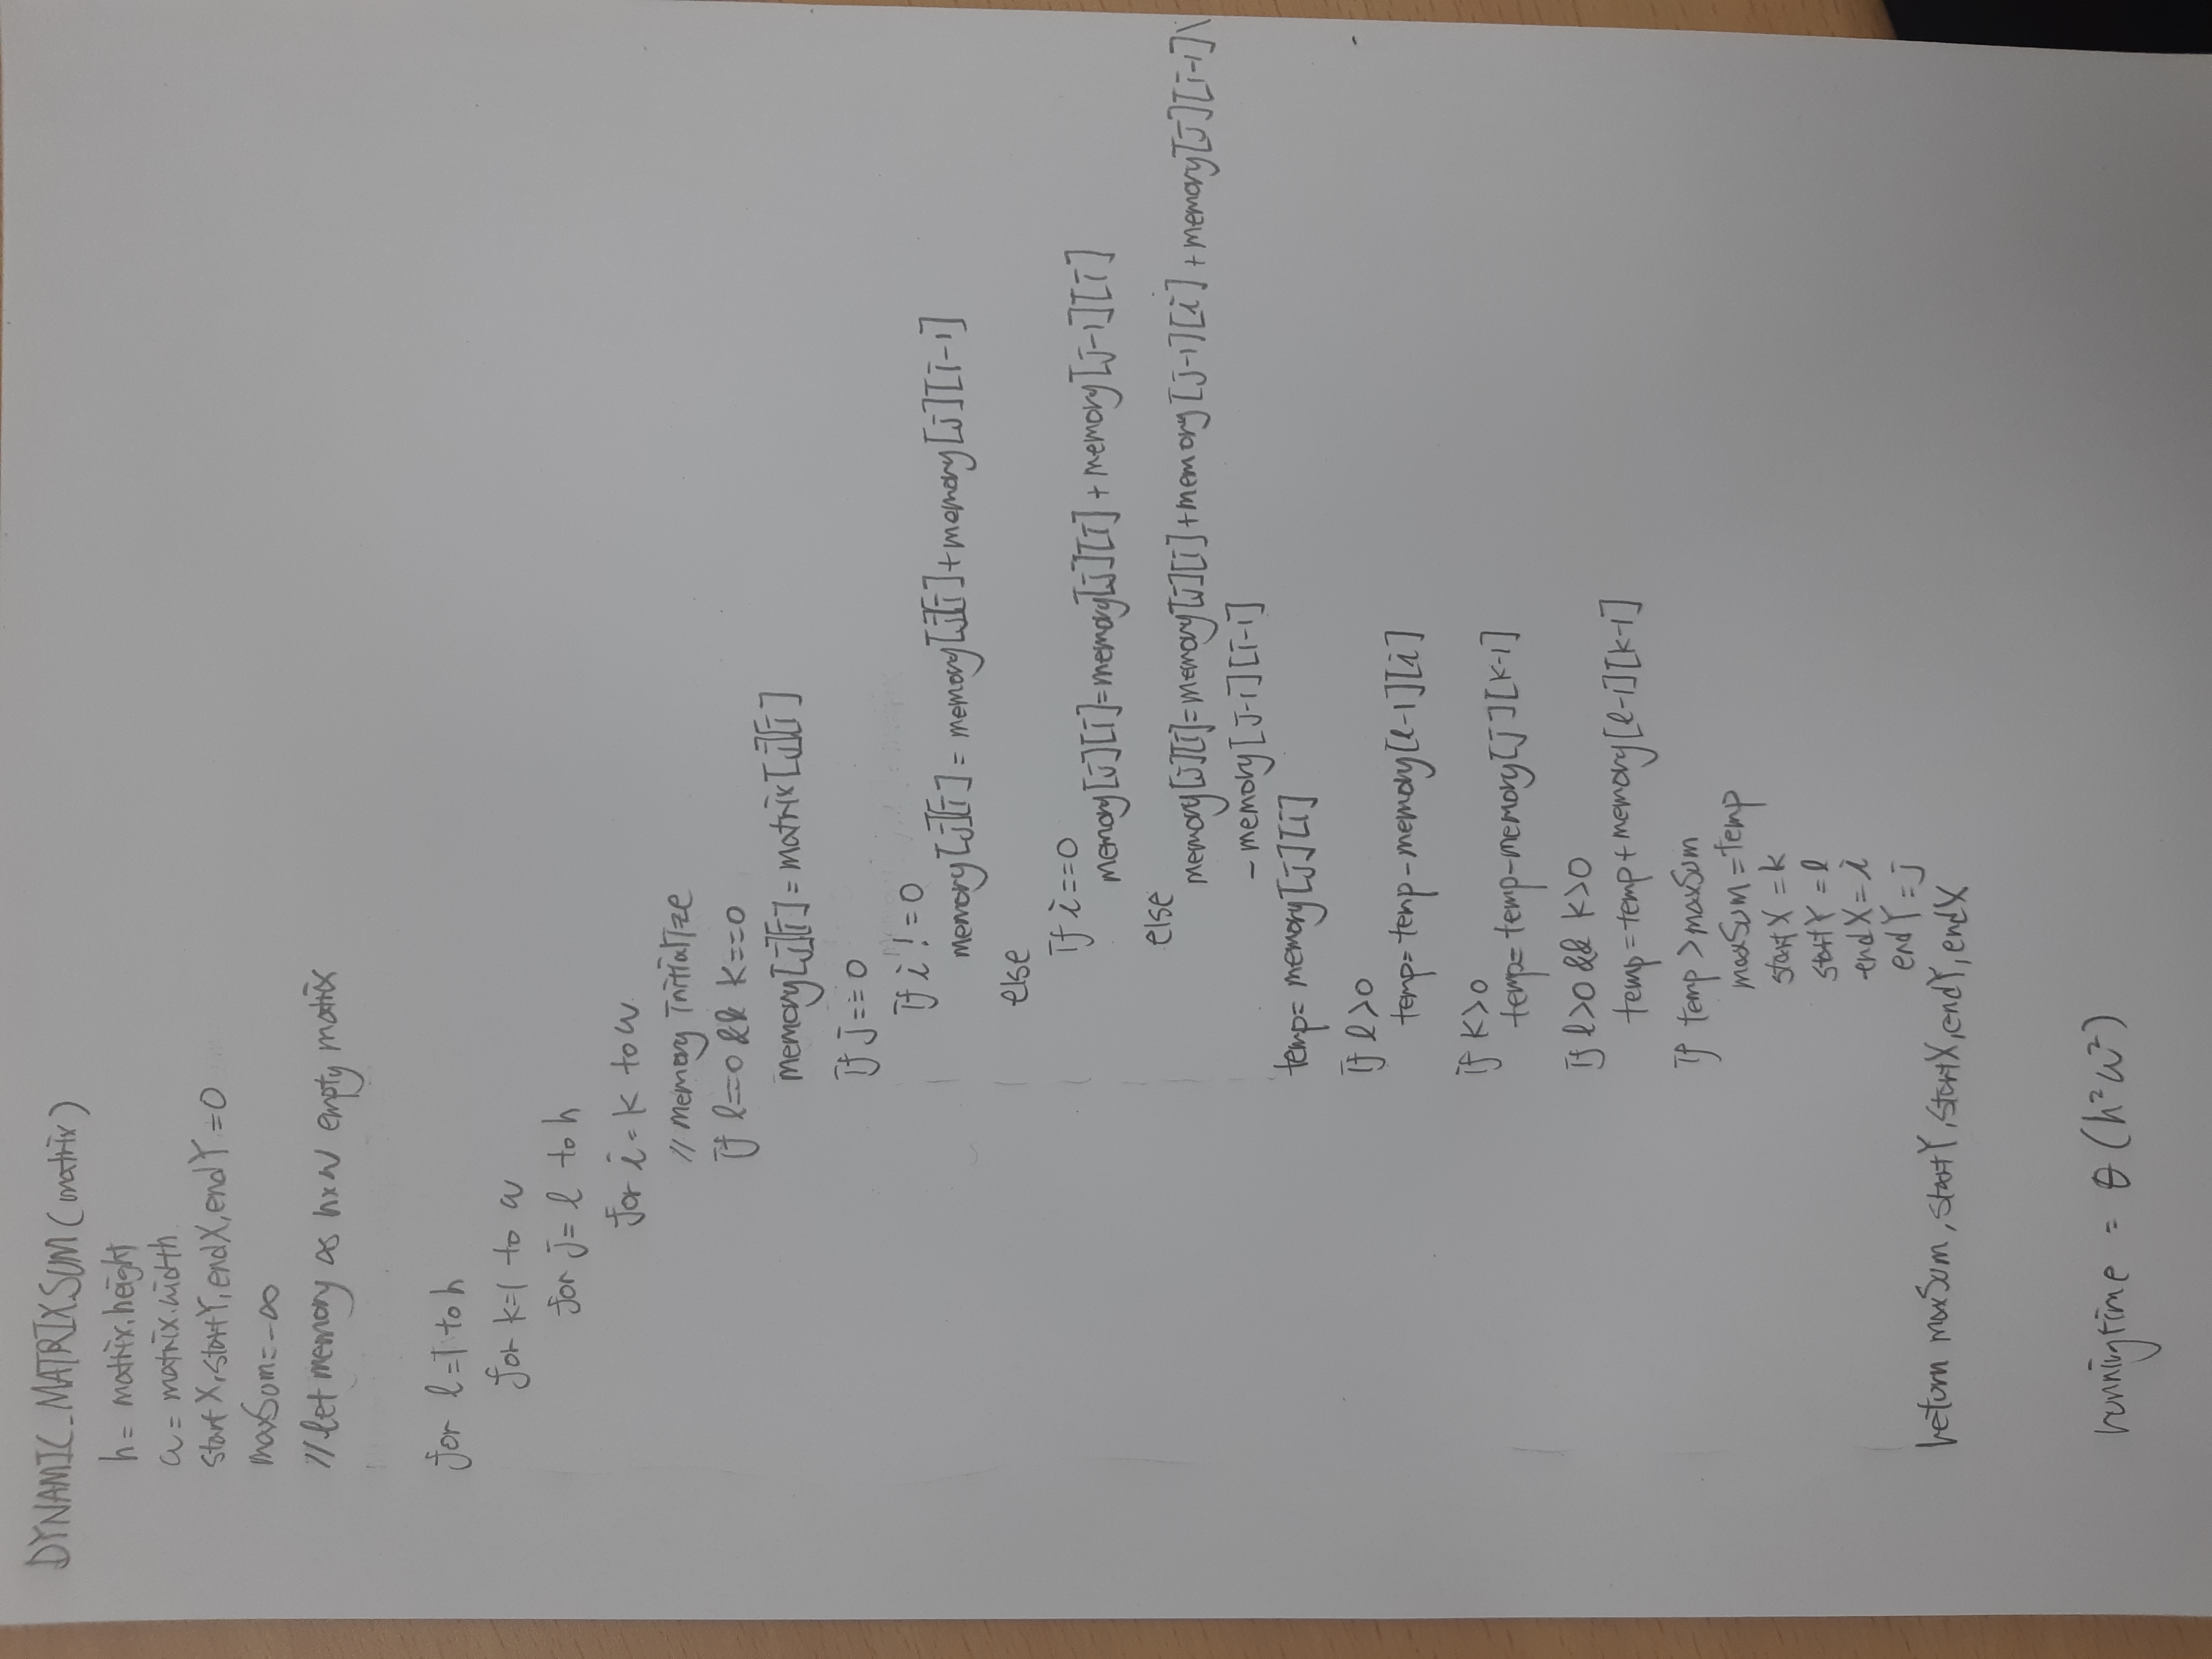 DYNAMIC_MATRIXSUM (matrix)
h = matrix.height
w = matrix.width
startX, startY, endX, endY = 0
maxSum = -∞
// let memory as h×w empty matrix
for l=1 to h
for k=1 to w
for j= l to h
for i = k to w
// memory initialize
if l==0 && k==0
memory[j][i] = matrix[j][i]
if j==0
if i != 0
memory[j][i] = memory[j][i] + memory[j][i-1]
else
if i==0
memory[j][i] = memory[j][i] + memory[j-1][i]
else
memory[j][i] = memory[j][i] + memory[j-1][i] + memory[j][i-1] \
- memory[j-1][i-1]
temp = memory[j][i]
if l>0
temp = temp - memory[l-1][i]
if k>0
temp = temp - memory[j][k-1]
if l>0 && k>0
temp = temp + memory[l-1][k-1]
if temp > maxSum
maxSum = temp
startX = k
startY = l
endX = i
endY = j
return maxSum, startY, startX, endY, endX
runningtime = θ (h²w²)